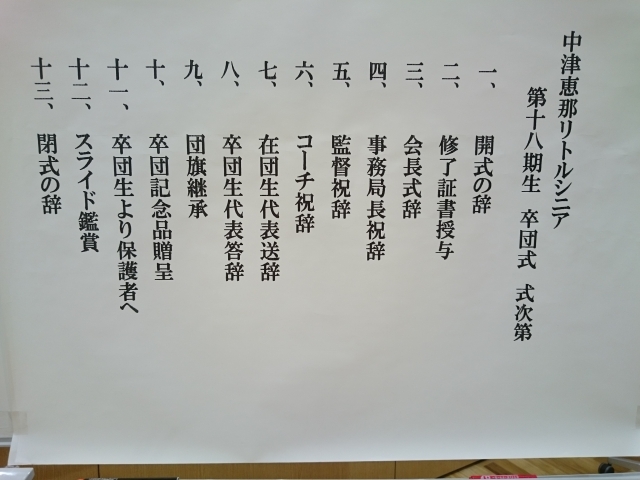 中津恵那リトルシニア
第十八期生　卒団式　式次第
一、　開式の辞
二、　修了証書授与
三、　会長式辞
四、　事務局長祝辞
五、　監督祝辞
六、　コーチ祝辞
七、　在団生代表送辞
八、　卒団生代表答辞
九、　団旗継承
十、　卒団記念品贈呈
十一、　卒団生より保護者へ
十二、　スライド鑑賞
十三、　閉式の辞